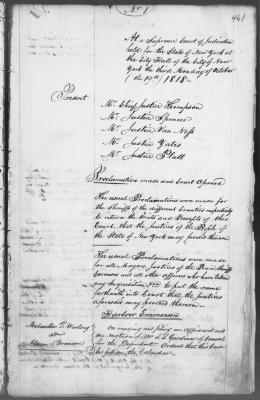 No 1
461
At a Supreme Court of Judicature
held for the State of New York at
the City Hall of the City of New
York the third Monday of October
(the 19th) 1818 —
Present
Mr Chief Justice Thompson
Mr Justice Spencer
Mr Justice Van Ness
Mr Justice Yates
Mr Justice Platt
Proclamation made and Court Opened
The usual Proclamations were made for
the Sheriffs of the different Counties respectively
to return the Writs and Precepts of this
Court, that the Justices of the People of
the State of New York may proceed thereon
The usual Proclamations were made
for all Mayors, Justices of the Peace Sheriffs
Coroners and all other Officers who have taken
any Inquisition &c to put the same
forthwith into Court that the justices
aforesaid may proceed thereon
On reading and filing an Affidavit and
on motion of Mr Gardiner of Counsel
for the Defendant Ordered that this Cause
be put on the Calendar
Bronson